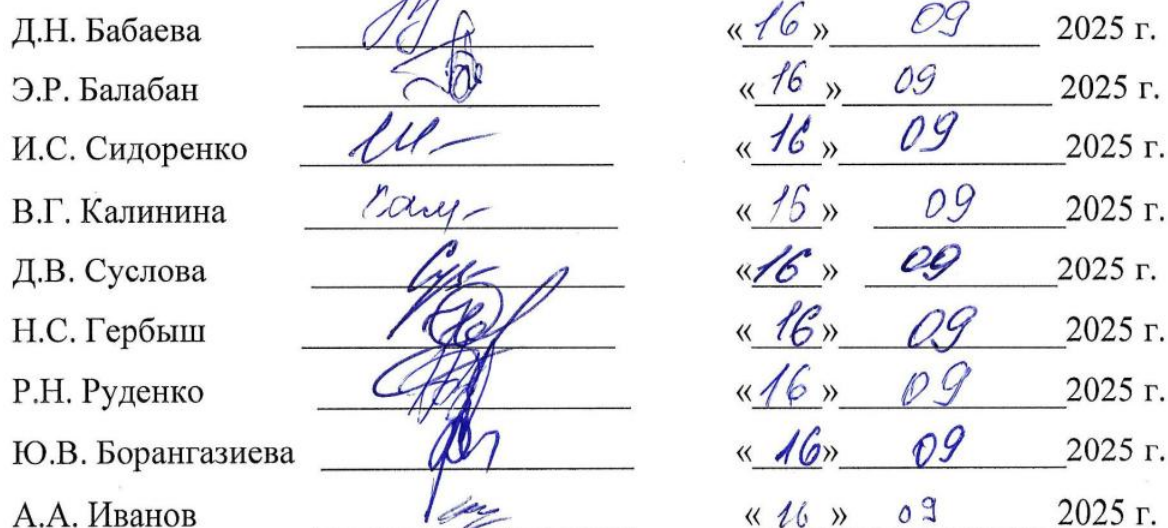 Д.Н. Бабаева «16» 09 2025 г.
Э.Р. Балабан «16» 09 2025 г.
И.С. Сидоренко «16» 09 2025 г.
В.Г. Калинина «16» 09 2025 г.
Д.В. Суслова «16» 09 2025 г.
Н.С. Гербыш «16» 09 2025 г.
Р.Н. Руденко «16» 09 2025 г.
Ю.В. Борангазиева «16» 09 2025 г.
А.А. Иванов «16» 09 2025 г.